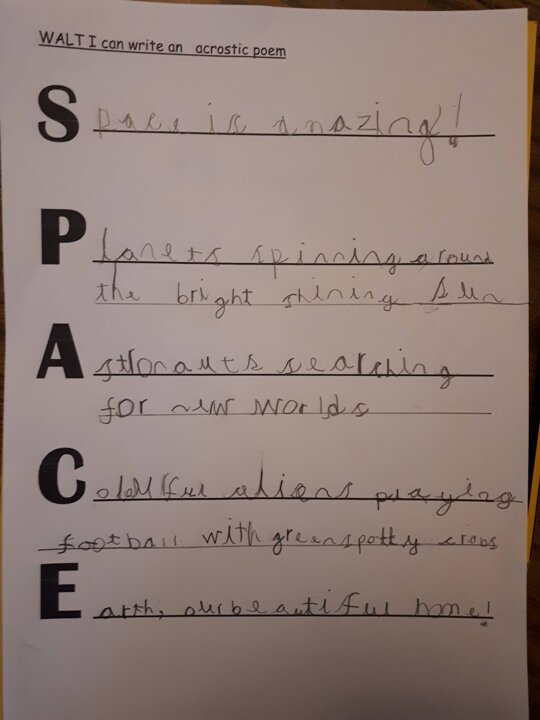 WALT I can write an acrostic poem
Space is amazing!
Planets spinning around
the bright shining Sun
Astronauts searching
for new worlds
Colourful aliens playing
football with green spotty
Earth, our beautiful home!